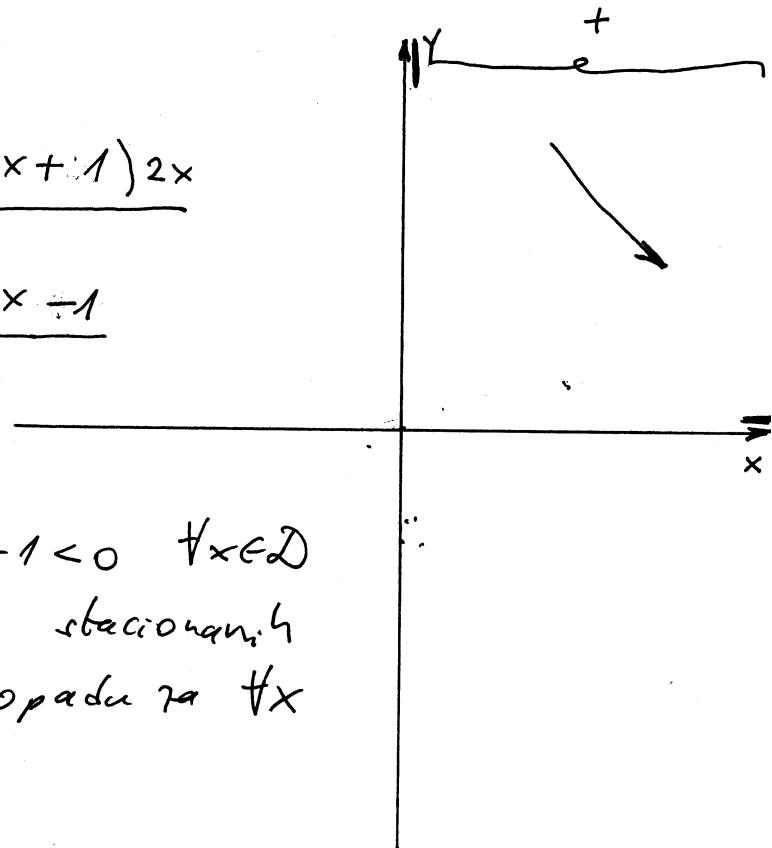 +
Y
x + 1 ) 2x
x - 1
x
-1 < 0 ∀x∈D
stacionarnih
opadu za ∀x